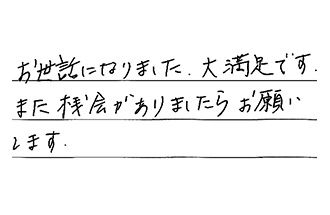 お世話になりました. 大満足です.
また機会がありましたらお願い
します.